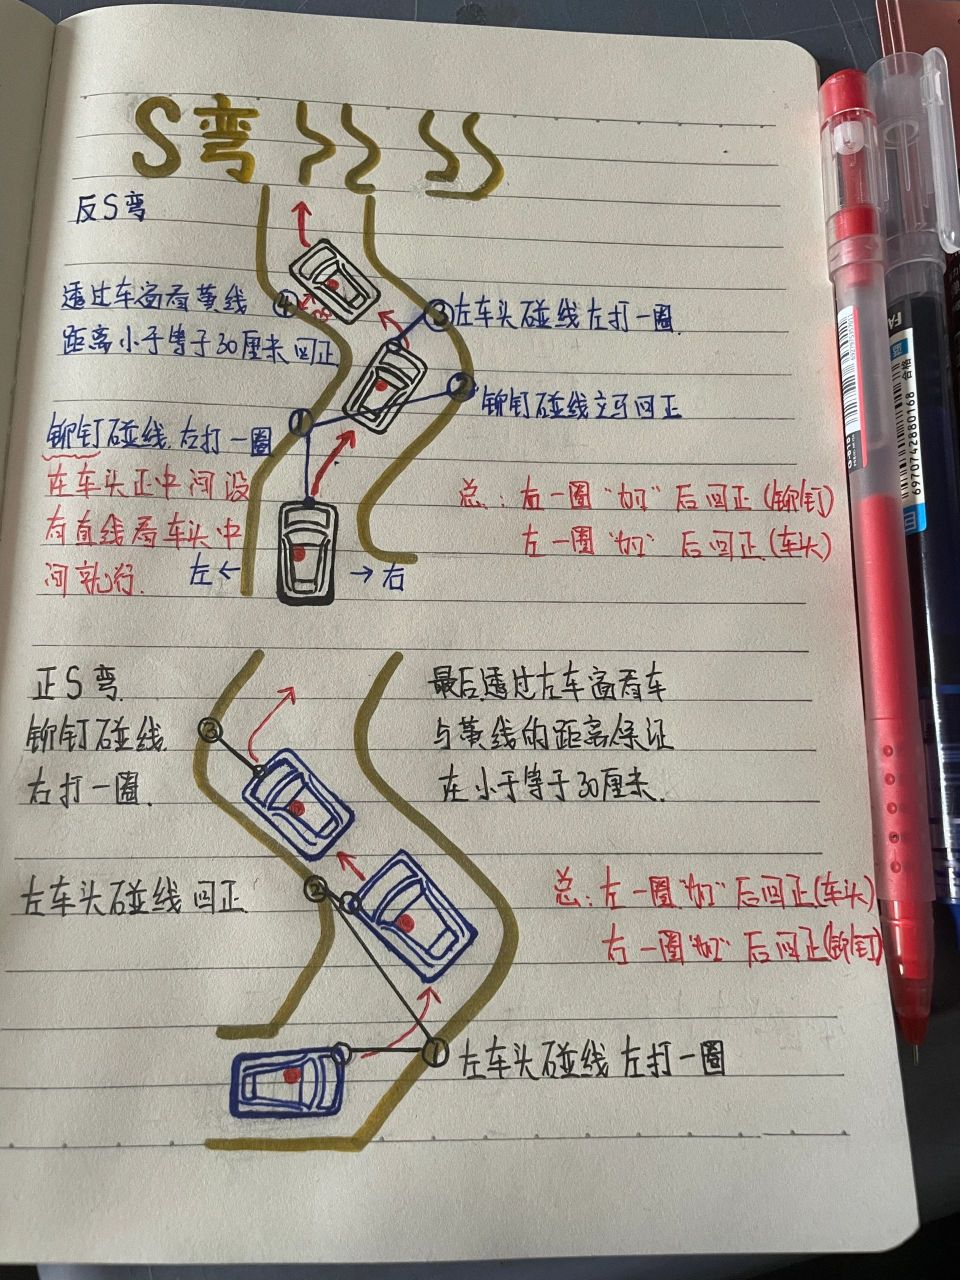 S弯
反S弯
透过车窗看黄线
距离小于等于30厘米回正
④
30
③
左车头碰线左打一圈.
②
铆钉碰线立马回正
①
铆钉碰线.右打一圈
在车头正中间没
有直线看车头中
间就行.
左← →右
总：右一圈 后回正(铆钉)
左一圈 后回正(车头)
正S弯
铆钉碰线
右打一圈.
③
最后透过左车窗看车
与黄线的距离保证
在小于等于30厘米.
左车头碰线回正
②
总：左一圈 后回正(车头)
右一圈 后回正(铆钉)
①
左车头碰线左打一圈
6970742880168
合格
蓝
FA